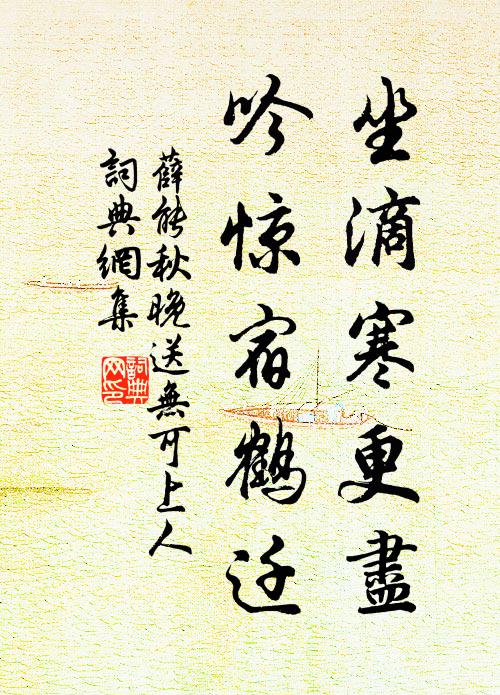 坐滴寒更盡
吟惊宿鶴迁
薛能秋晚送無可上人
詞典網集
詞典
网印